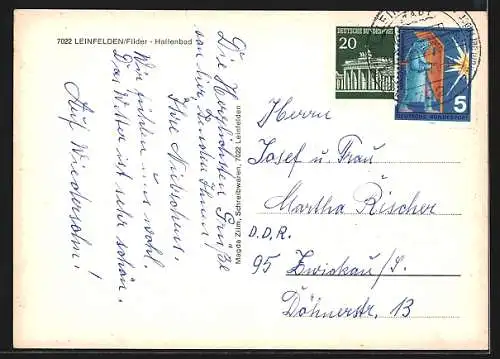 7022 LEINFELDEN/Filder - Hallenbad
Die Herzlichsten Grüße
von hier, senden Ihnen!
Ihre Nutschens.
Wir fühlen uns wohl.
Das Wetter ist sehr schön.
Auf Wiedersehn!
Magda Zilm, Schreibwaren, 7022 Leinfelden
DEUTSCHE BUNDESPOST
20
5
DEUTSCHE BUNDESPOST
Herrn
Josef u. Frau
Martha Rischer
D.D.R.
95 Zwickau/S.
Döhnerstr. 13